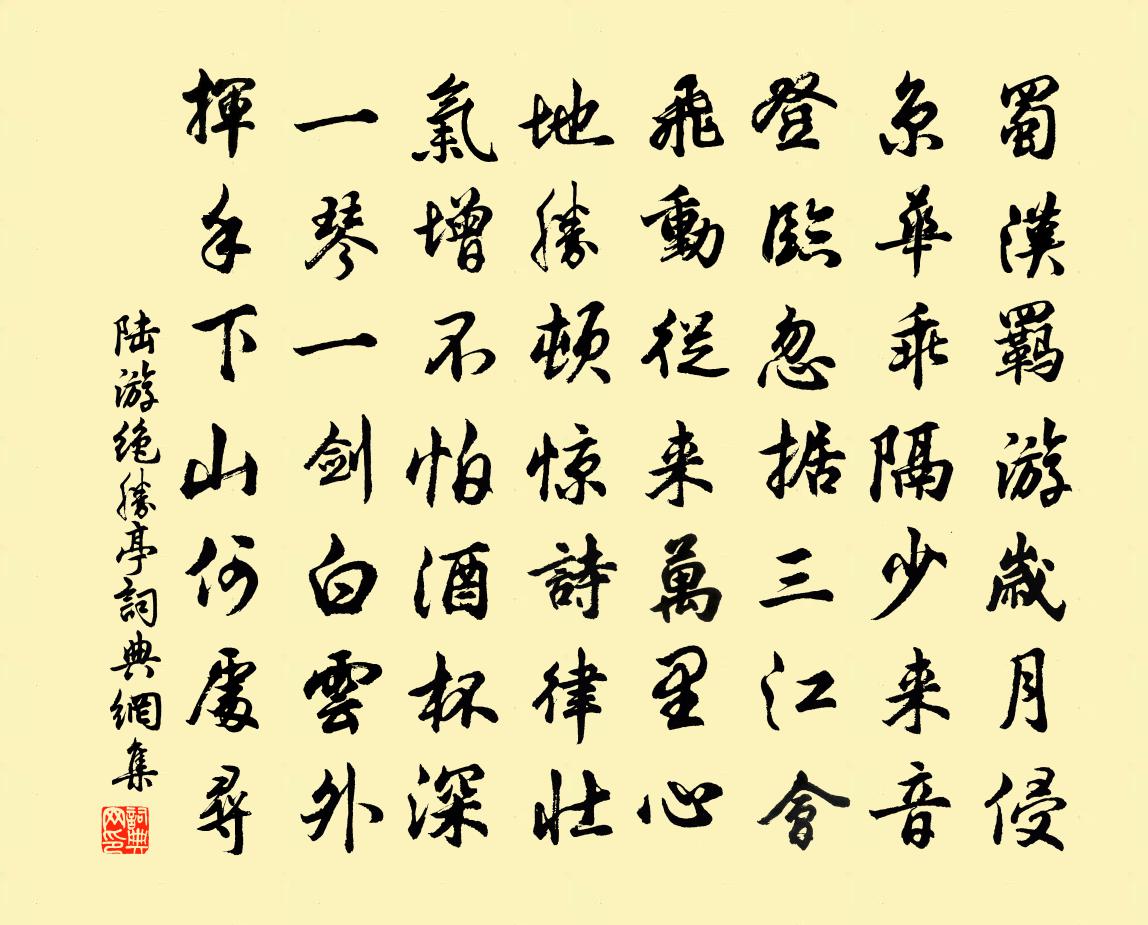 蜀漢羇游歲月侵
京華乖隔少来音
登臨忽据三江會
飛動從来萬里心
地勝頓惊詩律壮
氣增不怕酒杯深
一琴一劍白雲外
揮手下山何處尋
陆游绝勝亭詞典網集
詞典網印